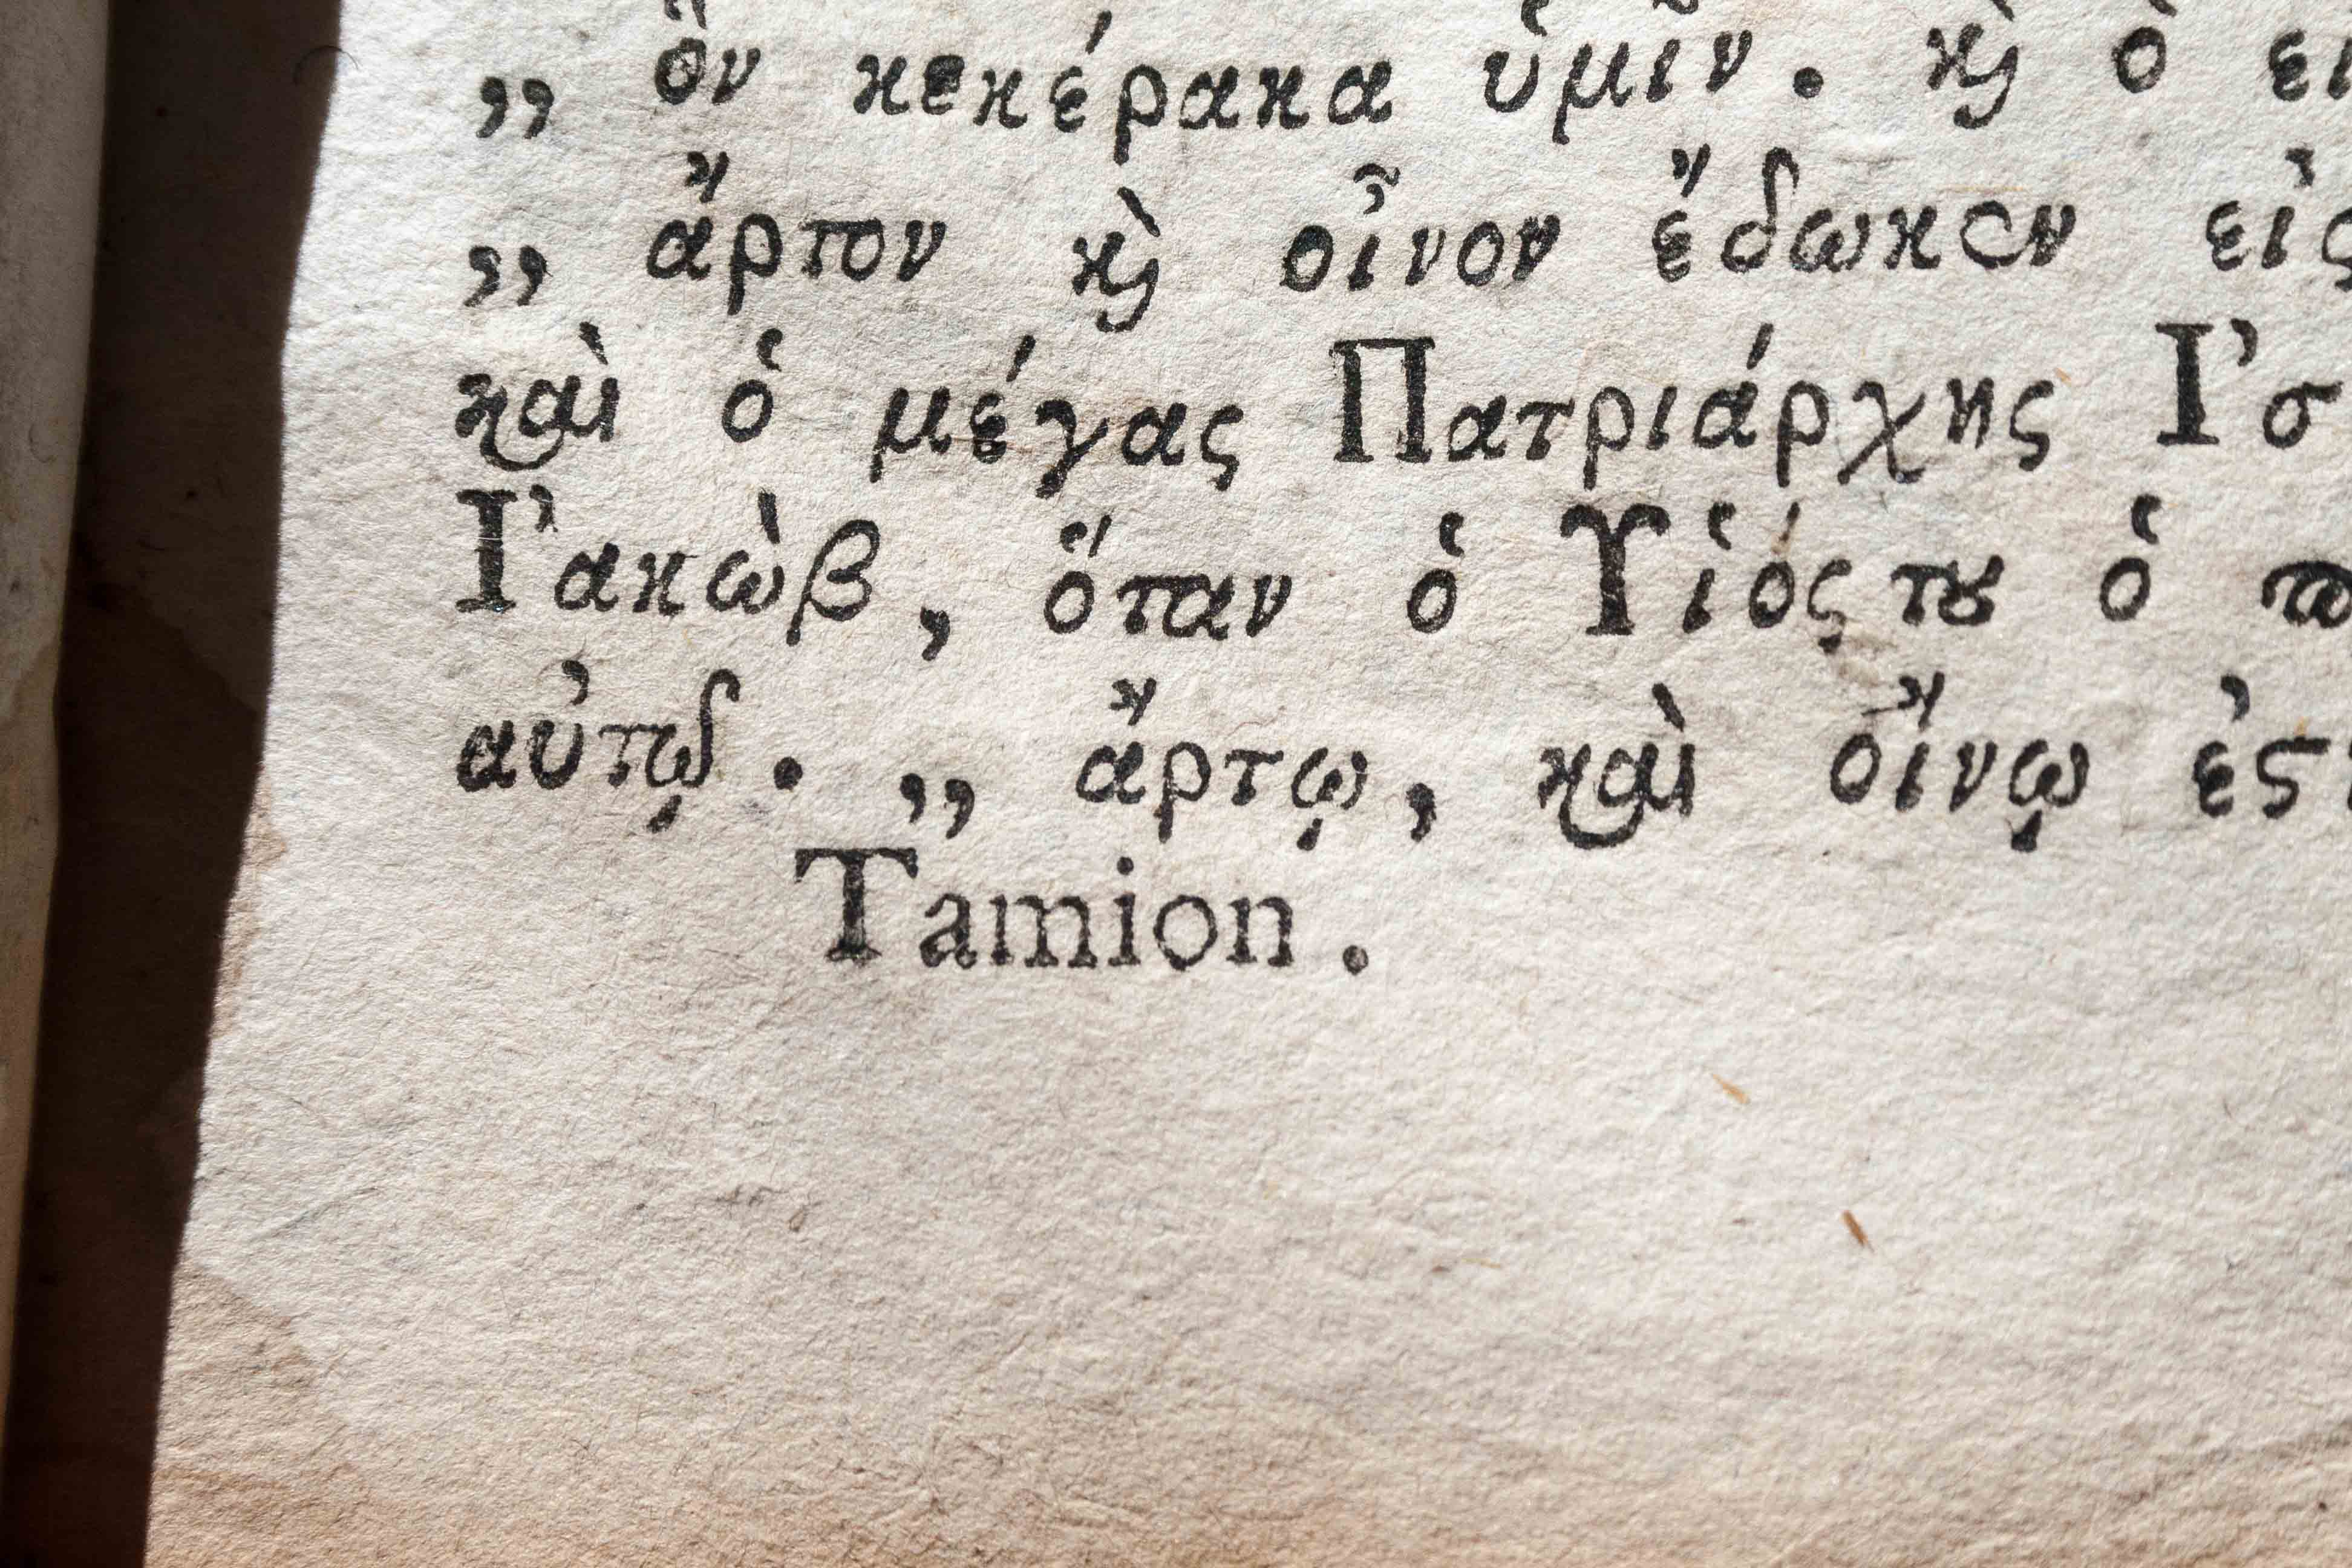 „ ὃν κεκέρακα ὑμῖν. καὶ ὁ
„ ἄρτον καὶ οἶνον ἔδωκεν εἰς
καὶ ὁ μέγας Πατριάρχης
Ἰακὼβ, ὅταν ὁ Υἱός του ὁ
αὐτῷ. „ ἄρτῳ, καὶ οἴνῳ
Tamion.